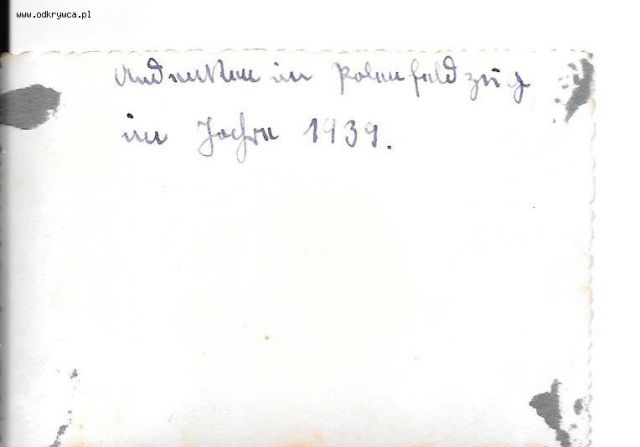 www.odkrywca.pl
Andenken im Polenfeldzug
im Jahre 1939.